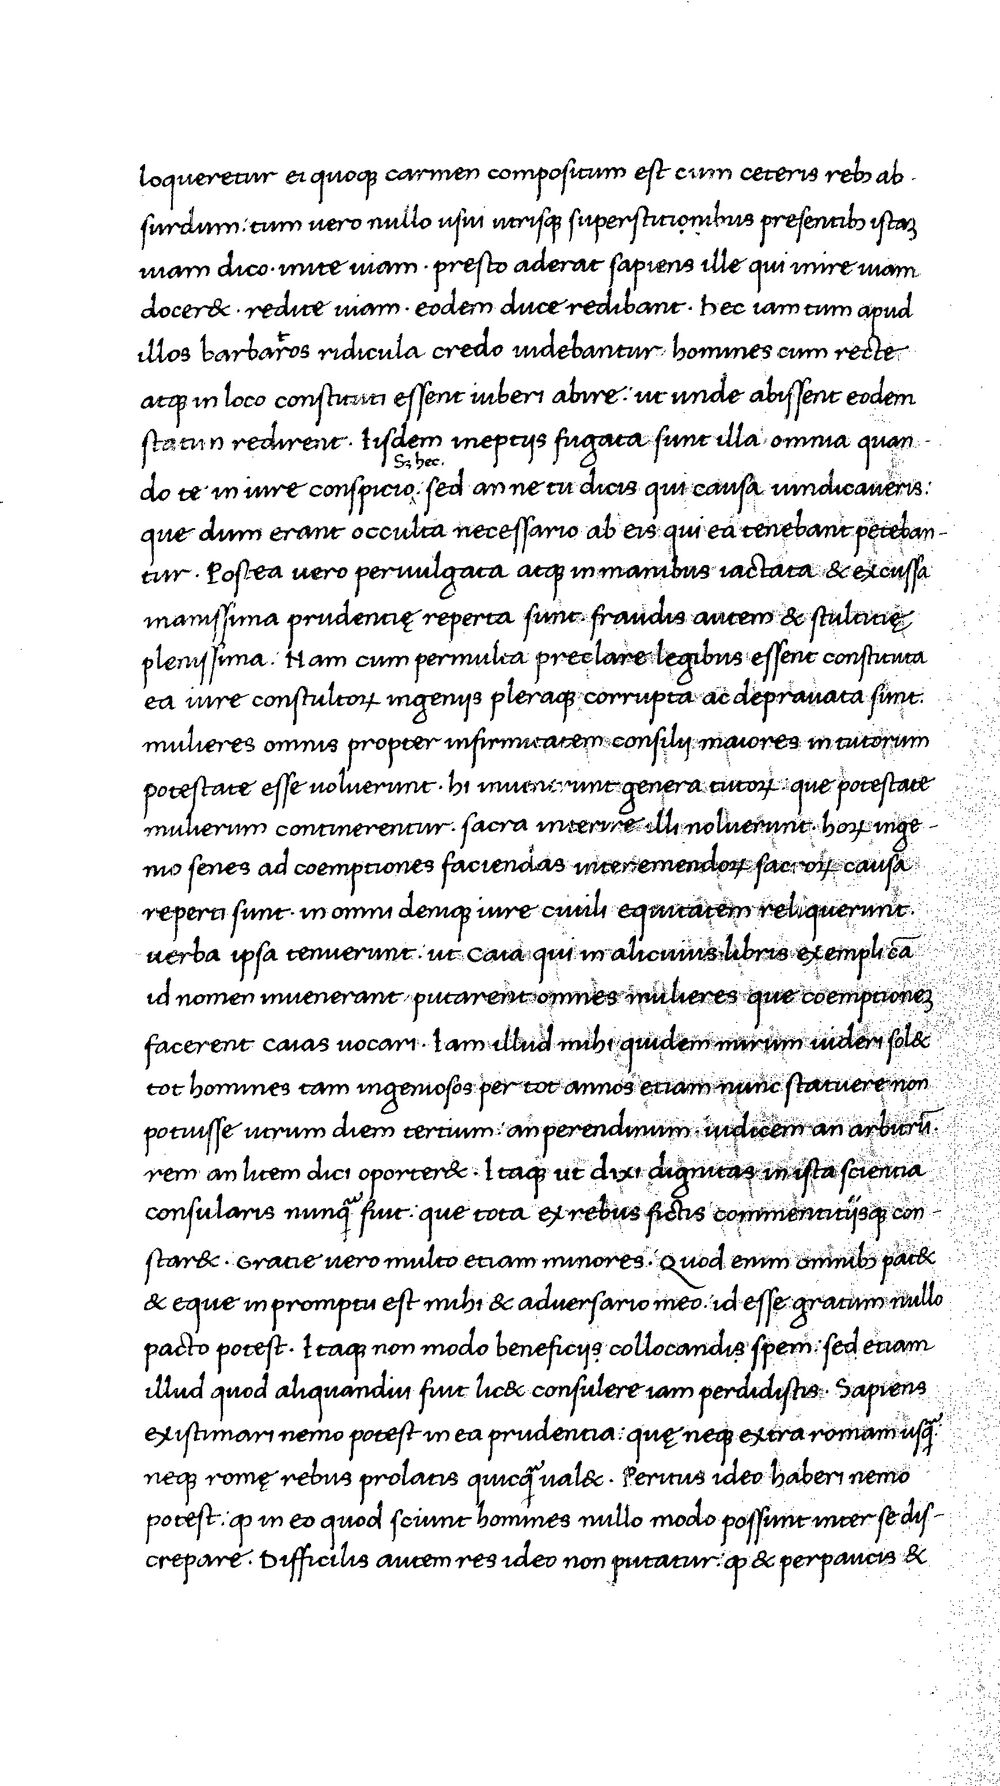 loqueretur ei quoqꝫ carmen compositum est cum ceteris rebꝫ ab-
surdum: tum uero nullo usui utrisqꝫ superstitionibus presentibꝫ istaꝫ
uiam dico· inite uiam· presto aderat sapiens ille qui inire uiam
docer&· redite uiam· eodem duce redibant· hec iam tum apud
illos barbaros ridicula credo uidebantur· homines cum recte
atqꝫ in loco constituti essent iuberi abire: ut unde abissent eodem
statim redirent· Iisdem ineptiis fugata sunt illa omnia quan-
Sꝫ hec.
do te in iure conspicio: sed anne tu dicis qui causa uindicaueris:
que dum erant occulta necessario ab eis qui ea tenebant peteban-
tur· Postea uero peruulgata atqꝫ in manibus iactata & excussa
inanissima prudentię reperta sunt· fraudis autem & stultitię
plenissima· Nam cum permulta preclare legibus essent constituta
ea iure constultoꝝ ingeniis pleraqꝫ corrupta ac deprauata sunt.
mulieres omnis propter infirmitatem consilii maiores in tutorum
potestate esse uoluerunt· hi inuenerunt genera tutoꝝ: que potestate
mulierum continerentur· sacra interire illi noluerunt· hoꝝ inge-
nio senes ad coemptiones faciendas interemendoꝝ sacroꝝ causa
reperti sunt· in omni deniqꝫ iure ciuili equitatem reliquerunt·
uerba ipsa tenuerunt· ut Caia qui in alicuius libris exempli cā
id nomen inuenerant· putarent omnes mulieres que coemptioneꝫ
facerent caias uocari· Iam illud mihi quidem mirum uideri sol&
tot homines tam ingeniosos per tot annos etiam nunc statuere non
potuisse utrum diem tertium· an perendinum· iudicem an arbitrū·
rem an litem dici oporter&· Itaqꝫ ut dixi dignitas in ista scientia
consularis nunq̄ fuit· que tota ex rebus fictis commentitiisqꝫ con-
star&· Gratie uero multo etiam minores· Quod enim omnibꝫ pat&
& eque in promptu est mihi & aduersario meo· id esse gratum nullo
pacto potest· Itaqꝫ non modo beneficiis collocandis spem: sed etiam
illud quod aliquandiu fuit lic& consulere iam perdidistis· Sapiens
existimari nemo potest in ea prudentia: quę neqꝫ extra romam usq̄
neqꝫ romę rebus prolatis quicq̄ ual&· Peritus ideo haberi nemo
potest: ꝙ in eo quod sciunt homines nullo modo possunt inter se dis-
crepare· Difficilis autem res ideo non putatur: ꝙ & perpaucis &